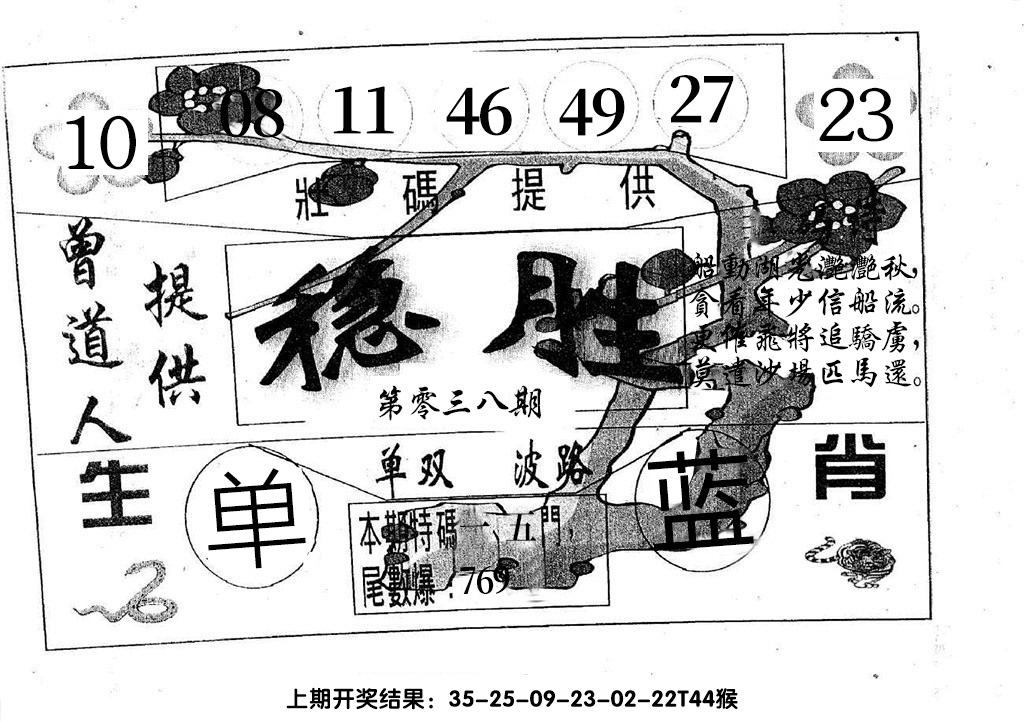 10 08 11 46 49 27 23
壯碼提供
曾道人
提供
稳胜
第零三八期
特
船動湖光灔灔秋，
貪看年少信船流。
更催飛將追驕虜，
莫遣沙場匹馬還。
单双 波路
生肖
单
蓝
本期特碼一、五門，
尾數爆：769
上期开奖结果：35-25-09-23-02-22T44猴